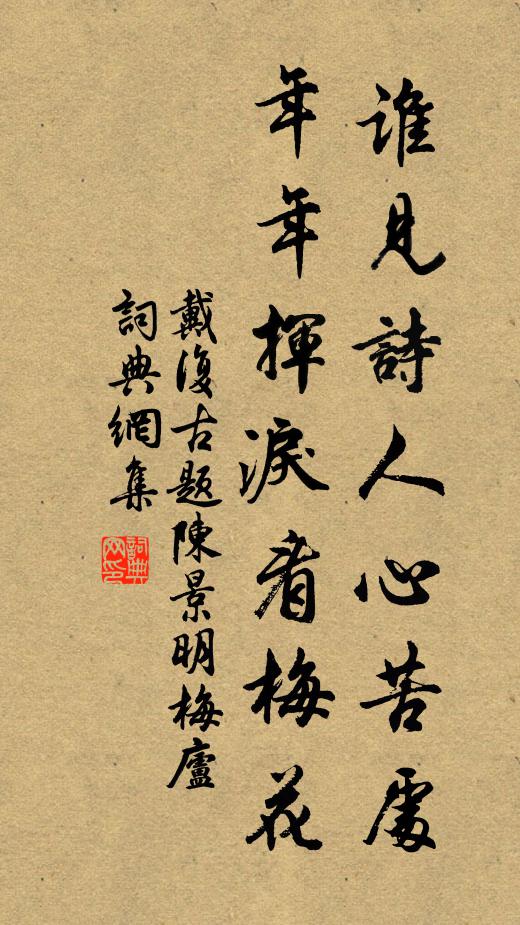 誰見詩人心苦處
年年揮淚看梅花
戴復古題陳景明梅廬
詞典網集
詞典網印